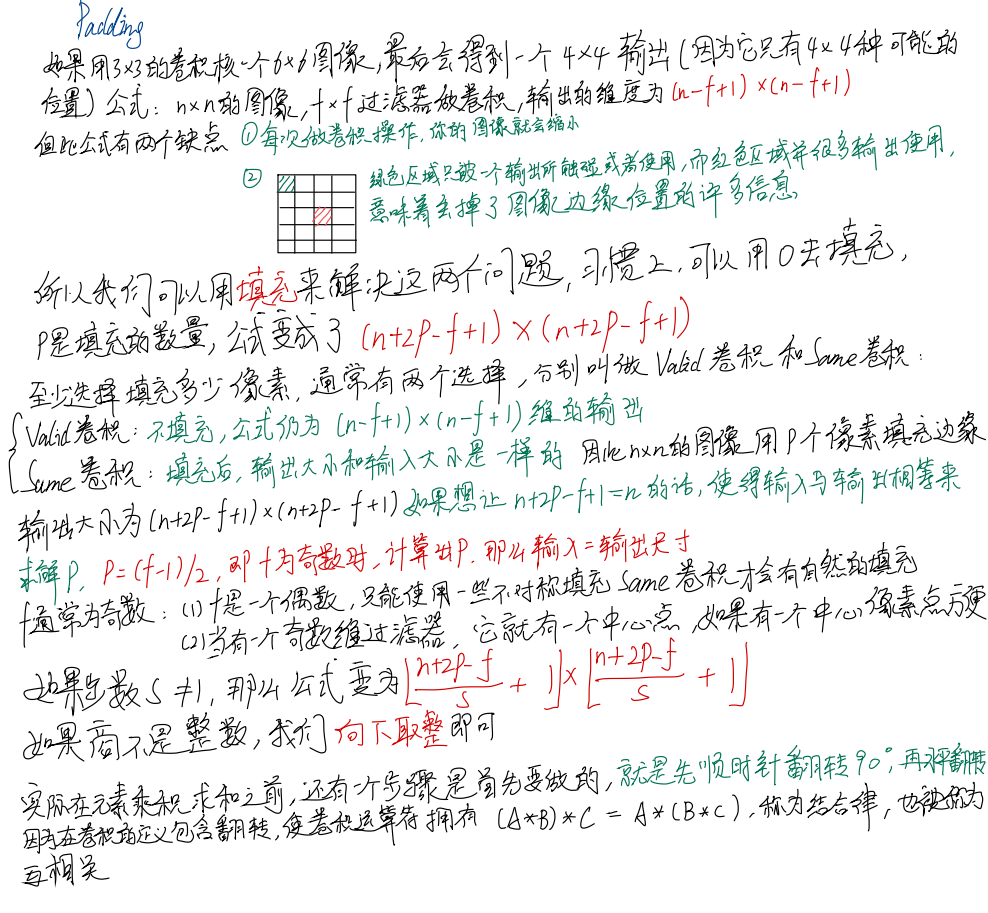 Padding
如果用3×3的卷积核一个6×6图像,最后会得到一个 4×4 输出(因为它只有4×4种可能的
位置) 公式: n×n的图像, f×f 过滤器做卷积,输出的维度为(n-f+1)×(n-f+1)
但此公式有两个缺点 ①每次做卷积操作,你的图像就会缩小
② 绿色区域只被一个输出所触碰或者使用,而红色区域并很多输出使用,
意味着去掉了图像边缘位置的许多信息
所以我们可以用填充来解决这两个问题,习惯上,可以用0去填充,
P是填充的数量,公式变成了 (n+2P-f+1)×(n+2P-f+1)
至少选择填充多少像素,通常有两个选择,分别叫做 Valid 卷积和Same卷积:
Valid卷积: 不填充,公式仍为 (n-f+1)×(n-f+1)维的输出
Same 卷积: 填充后,输出大小和输入大小是一样的 因此n×n的图像 用P个像素填充边缘
输出大小为(n+2P-f+1)×(n+2P-f+1)如果想让 n+2P-f+1=n 的话,使得输入与输出相等来
求解P, P=(f-1)/2, 即 f为奇数时,计算出P,那么输入=输出尺寸
f通常为奇数: (1) f是一个偶数,只能使用一些不对称填充 Same 卷积才会有自然的填充
(2)当有一个奇数维过滤器,它就有一个中心点,如果有一个中心像素点方便
如果步数 S≠1,那么公式变为⌊(n+2P-f)/s + 1⌋×⌊(n+2P-f)/s + 1⌋
如果商不是整数,我们向下取整即可
实际在元素乘积求和之前,还有一个步骤是首先要做的,就是先顺时针翻转90°,再水平翻转
因为在卷积的定义包含翻转,使卷积运算符拥有 (A*B)*C = A*(B*C),称为结合律,也被称为
互相关